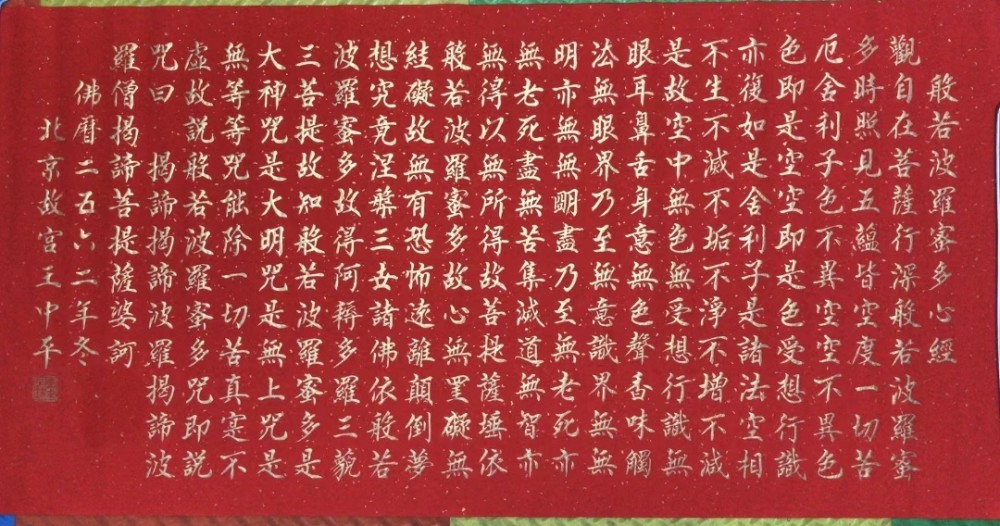 般若波羅蜜多心經
觀自在菩薩行深般若波羅蜜
多時照見五蘊皆空度一切苦
厄舍利子色不異空空不異色
色即是空空即是色受想行識
亦復如是舍利子是諸法空相
不生不滅不垢不淨不增不減
是故空中無色無受想行識無
眼耳鼻舌身意無色聲香味觸
法無眼界乃至無意識界無無
明亦無無朙盡乃至無老死亦
無老死盡無苦集滅道無智亦
無得以無所得故菩提薩埵依
般若波羅蜜多故心無罣礙無
絓礙故無有恐怖遠離顛倒夢
想究竟涅槃三世諸佛依般若
波羅蜜多故得阿耨多羅三藐
三菩提故知般若波羅蜜多是
大神咒是大明咒是無上咒是
無等等咒能除一切苦真寔不
虛故説般若波羅蜜多咒即説
咒曰 揭諦揭諦波羅揭諦波
羅僧揭諦菩提薩婆訶
佛曆二五六二年冬
北京故宮王中平